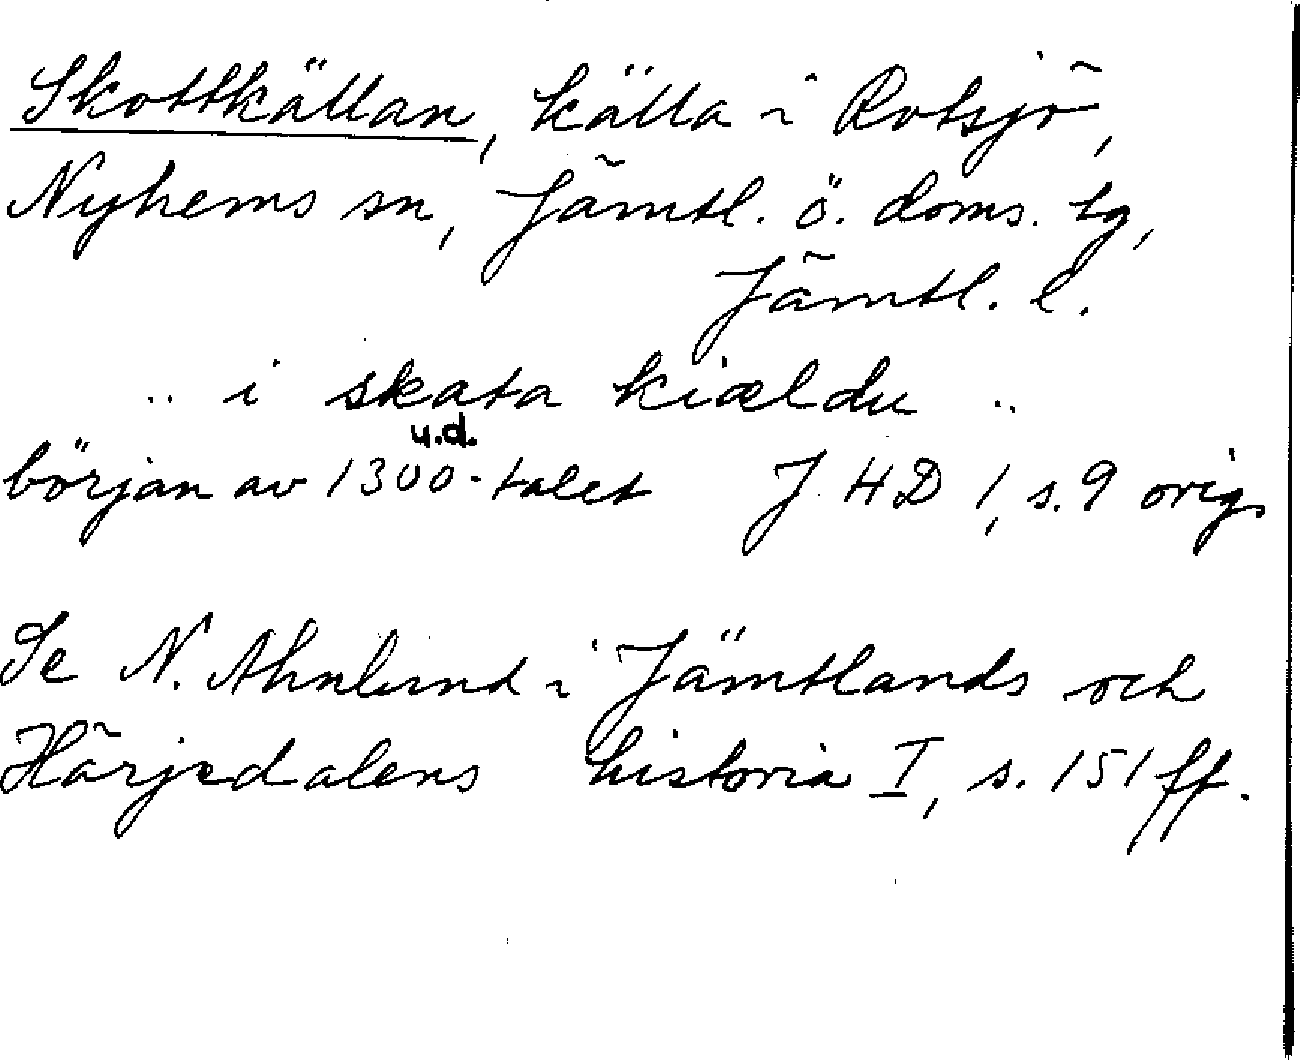 Skottkällan, källa i Rotsjö,
Nyhems sn, Jämtl. ö. doms. tg,
Jämtl. l.
.. i skata kiældu ..
u.d.
början av 1300-talet J. H D 1, s. 9 orig.
Se N. Ahnlund i Jämtlands och
Härjedalens historia I, s. 151 ff.